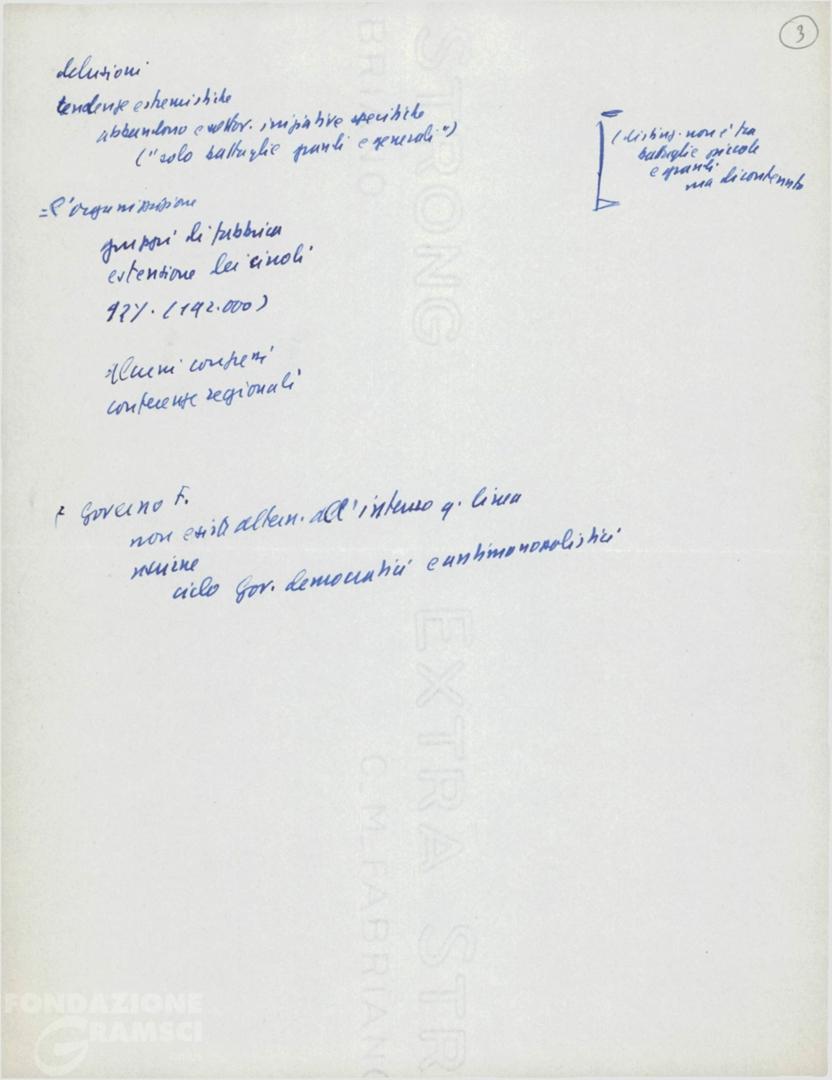 3
delusioni
tendenze estremistiche
abbandono e sottov. iniziative specifiche
("solo battaglie grandi e generali")
(disting. non è tra
battaglie piccole
e grandi
ma di contenuto
= l'organizzazione
gruppi di fabbrica
estensione dei circoli
92%. (192.000)
alcuni congressi
conferenze regionali
Governo F.
non esiste altern. all'interno q. linea
ciclo gov. democratici e antimonopolistici
STRONG
BRIANO
EXTRA STR
C. M. FABRIANO
FONDAZIONE
GRAMSCI